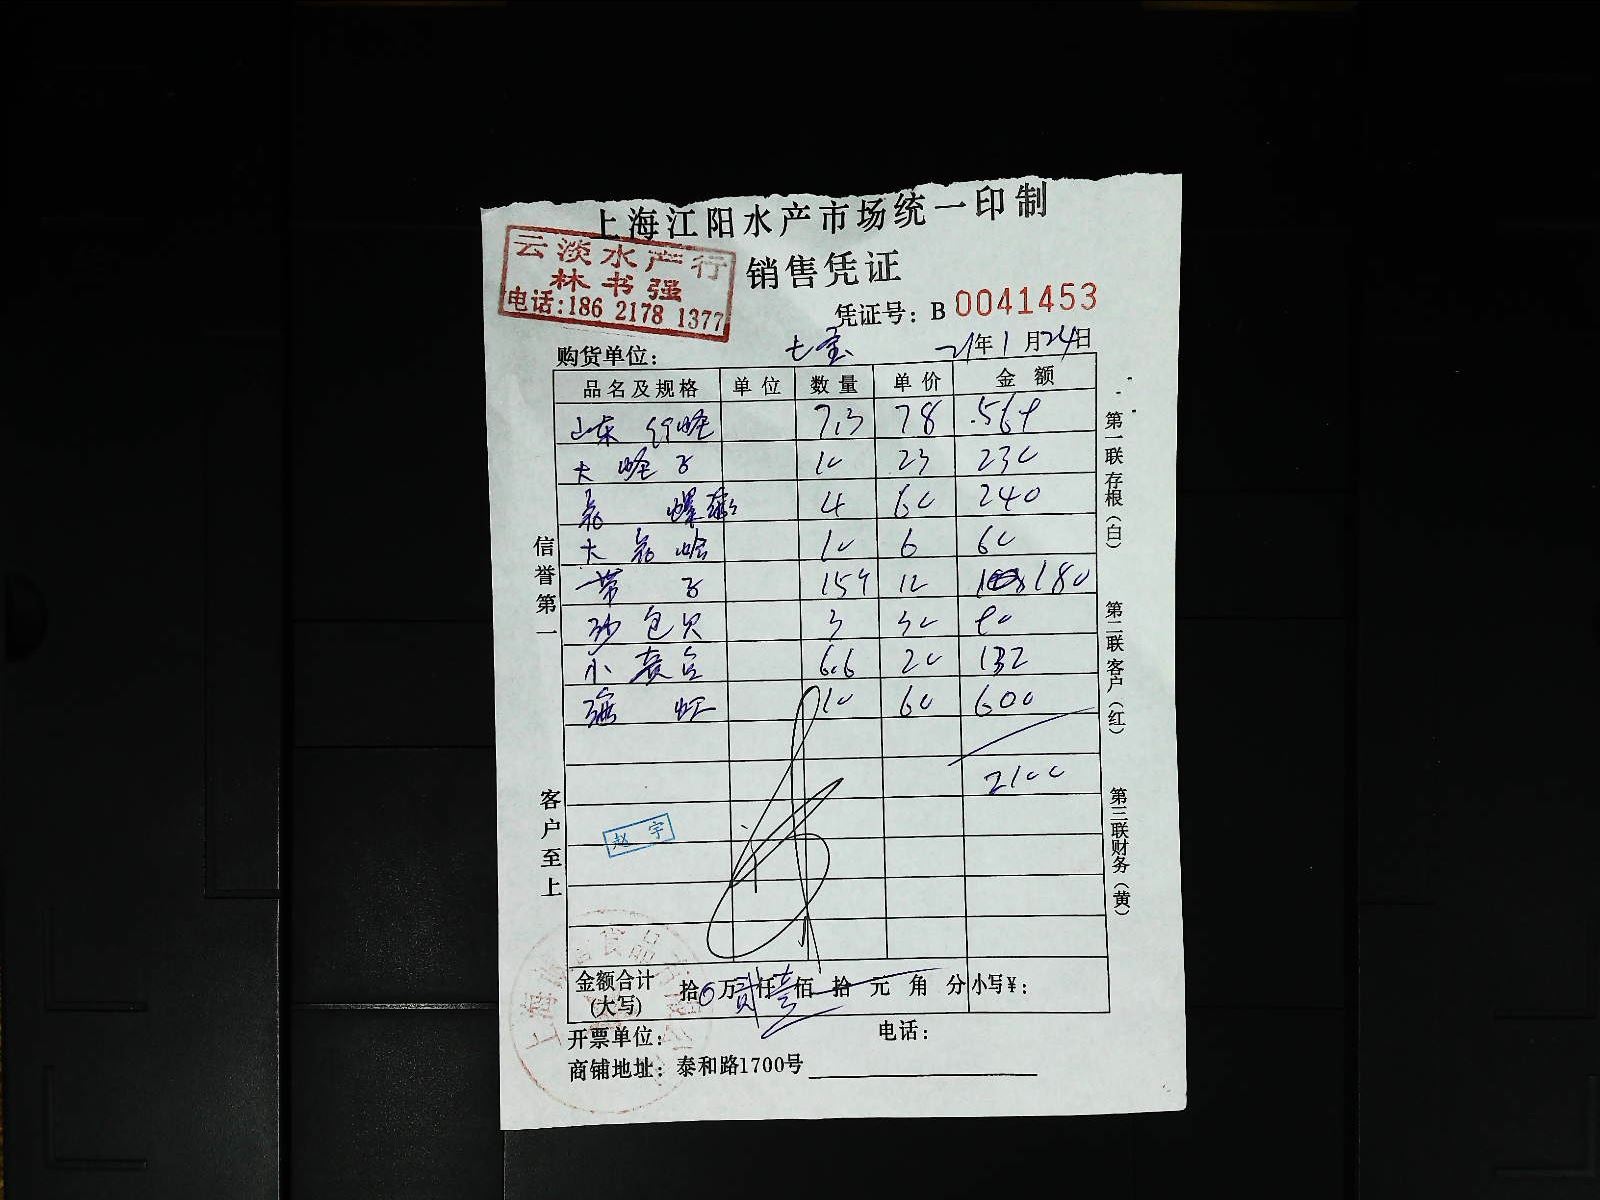 上海江阳水产市场统一印制
云淡水产行
林书强
电话:186 2178 1377
销售凭证
凭证号: B 0041453
购货单位: 七宝 21年1月24日
品名及规格 单位 数量 单价 金额
山东 蛏 7.3 78 569
大蛏子 10 23 230
螺 4 60 240
大 蛤 10 6 60
带子 15个 12 180
沙包贝 3 30 90
小 6.6 20 132
虾 10 60 600
2100
赵宇
金额合计(大写) 拾0万贰仟壹佰拾元角分 小写¥:
开票单位: 电话:
商铺地址: 泰和路1700号
信誉第一
客户至上
第一联存根(白)
第二联客户(红)
第三联财务(黄)